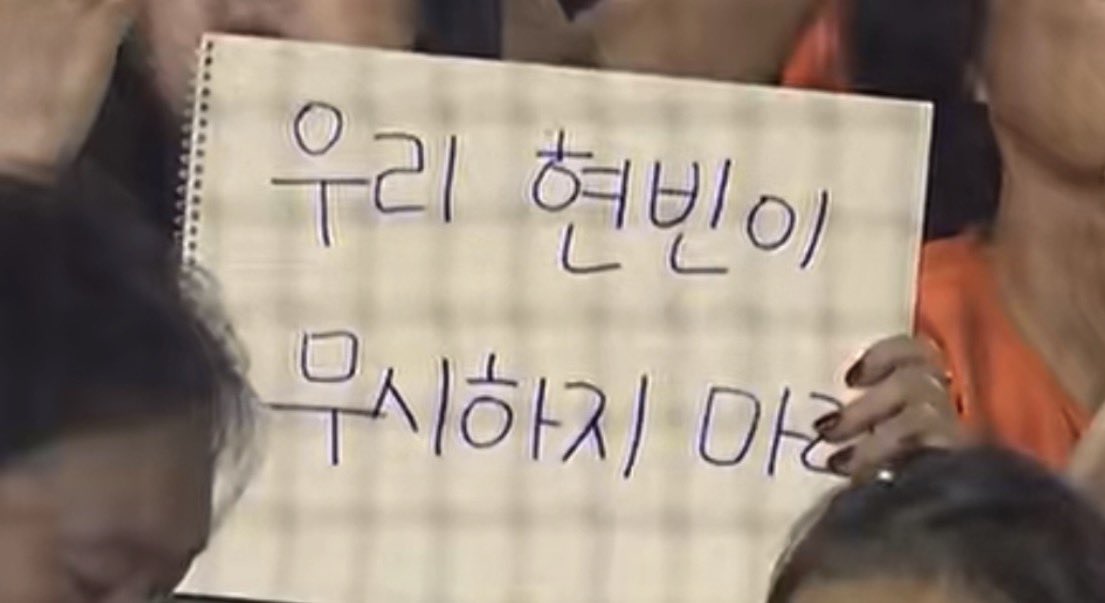 우리 현빈이
무시하지 마